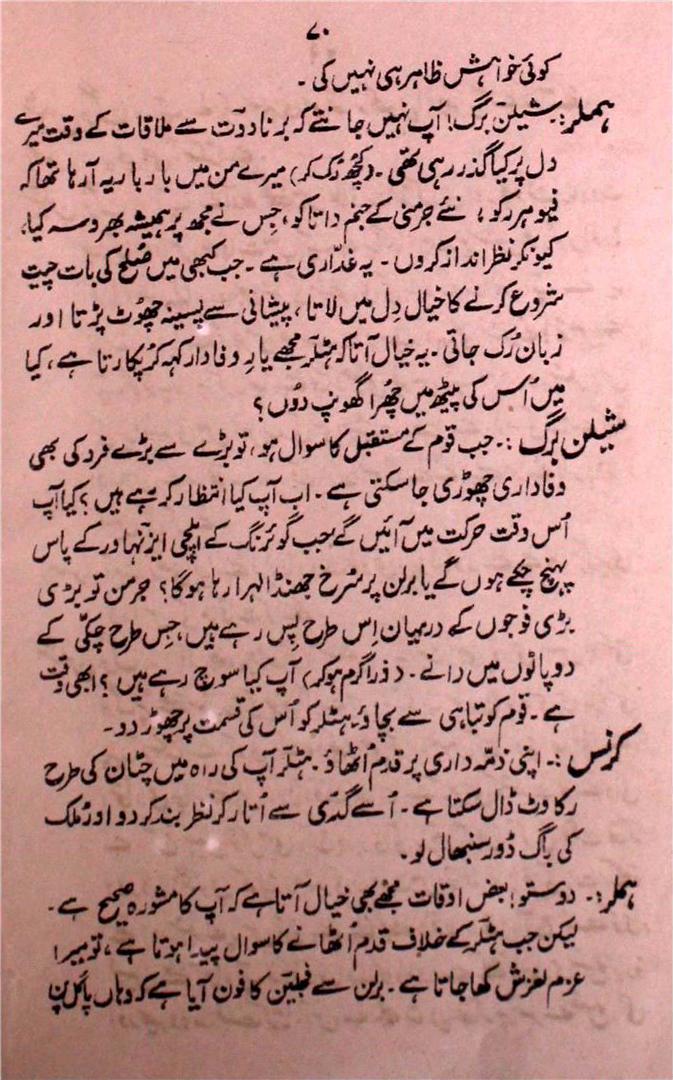 ۷۰
کوئی خواہش ظاہر ہی نہیں کی ۔
ہملر:۔ شیلن برگ! آپ نہیں جانتے کہ برناڈوٹ سے ملاقات کے وقت میرے
دل پر کیا گذر رہی تھی ۔ (کچھ رُک کر) میرے من میں بار بار یہ آ رہا تھا کہ
فیوہرر کو ، نئے جرمنی کے جنم داتا کو، جس نے مجھ پر ہمیشہ بھروسہ کیا،
کیونکر نظر انداز کروں ۔ یہ غدّاری ہے ۔ جب کبھی میں صُلح کی بات چیت
شروع کرنے کا خیال دِل میں لاتا ، پیشانی سے پسینہ چھوٹ پڑتا اور
زبان رُک جاتی ۔ یہ خیال آتا کہ ہٹلر مجھے یارِ وفادار کہہ کر پکارتا ہے ، کیا
میں اُس کی پیٹھ میں چُھرا گھونپ دوں ؟
شیلن برگ :۔ جب قوم کے مستقبل کا سوال ہو ، تو بڑے سے بڑے فرد کی بھی
وفاداری چھوڑی جا سکتی ہے ۔ اب آپ کیا انتظار کر رہے ہیں ؟ کیا آپ
اُس وقت حرکت میں آئیں گے جب گوئرنگ کے ایلچی ایزنہاور کے پاس
پہنچ چکے ہوں گے یا برلن پر سُرخ جھنڈا لہرا رہا ہوگا؟ جرمن تو بڑی
بڑی فوجوں کے درمیان اِس طرح پِس رہے ہیں ، جس طرح چکّی کے
دو پاٹوں میں دانے ۔ (ذرا گرم ہو کر) آپ کیا سوچ رہے ہیں ؟ ابھی وقت
ہے ۔ قوم کو تباہی سے بچاؤ ۔ ہٹلر کو اُس کی قسمت پر چھوڑ دو ۔
کرنس :۔ اپنی ذمّہ داری پر قدم اُٹھاؤ ۔ ہٹلر آپ کی راہ میں چٹان کی طرح
رکاوٹ ڈال سکتا ہے ۔ اُسے گدّی سے اُتار کر نظر بند کر دو اور مُلک
کی باگ ڈور سنبھال لو ۔
ہملر:۔ دوستو! بعض اوقات مجھے بھی خیال آتا ہے کہ آپ کا مشورہ صحیح ہے ۔
لیکن جب ہٹلر کے خلاف قدم اُٹھانے کا سوال پیدا ہوتا ہے ، تو میرا
عزم لغزش کھا جاتا ہے ۔ برلن سے کا فون آیا ہے کہ وہاں پاگل پن